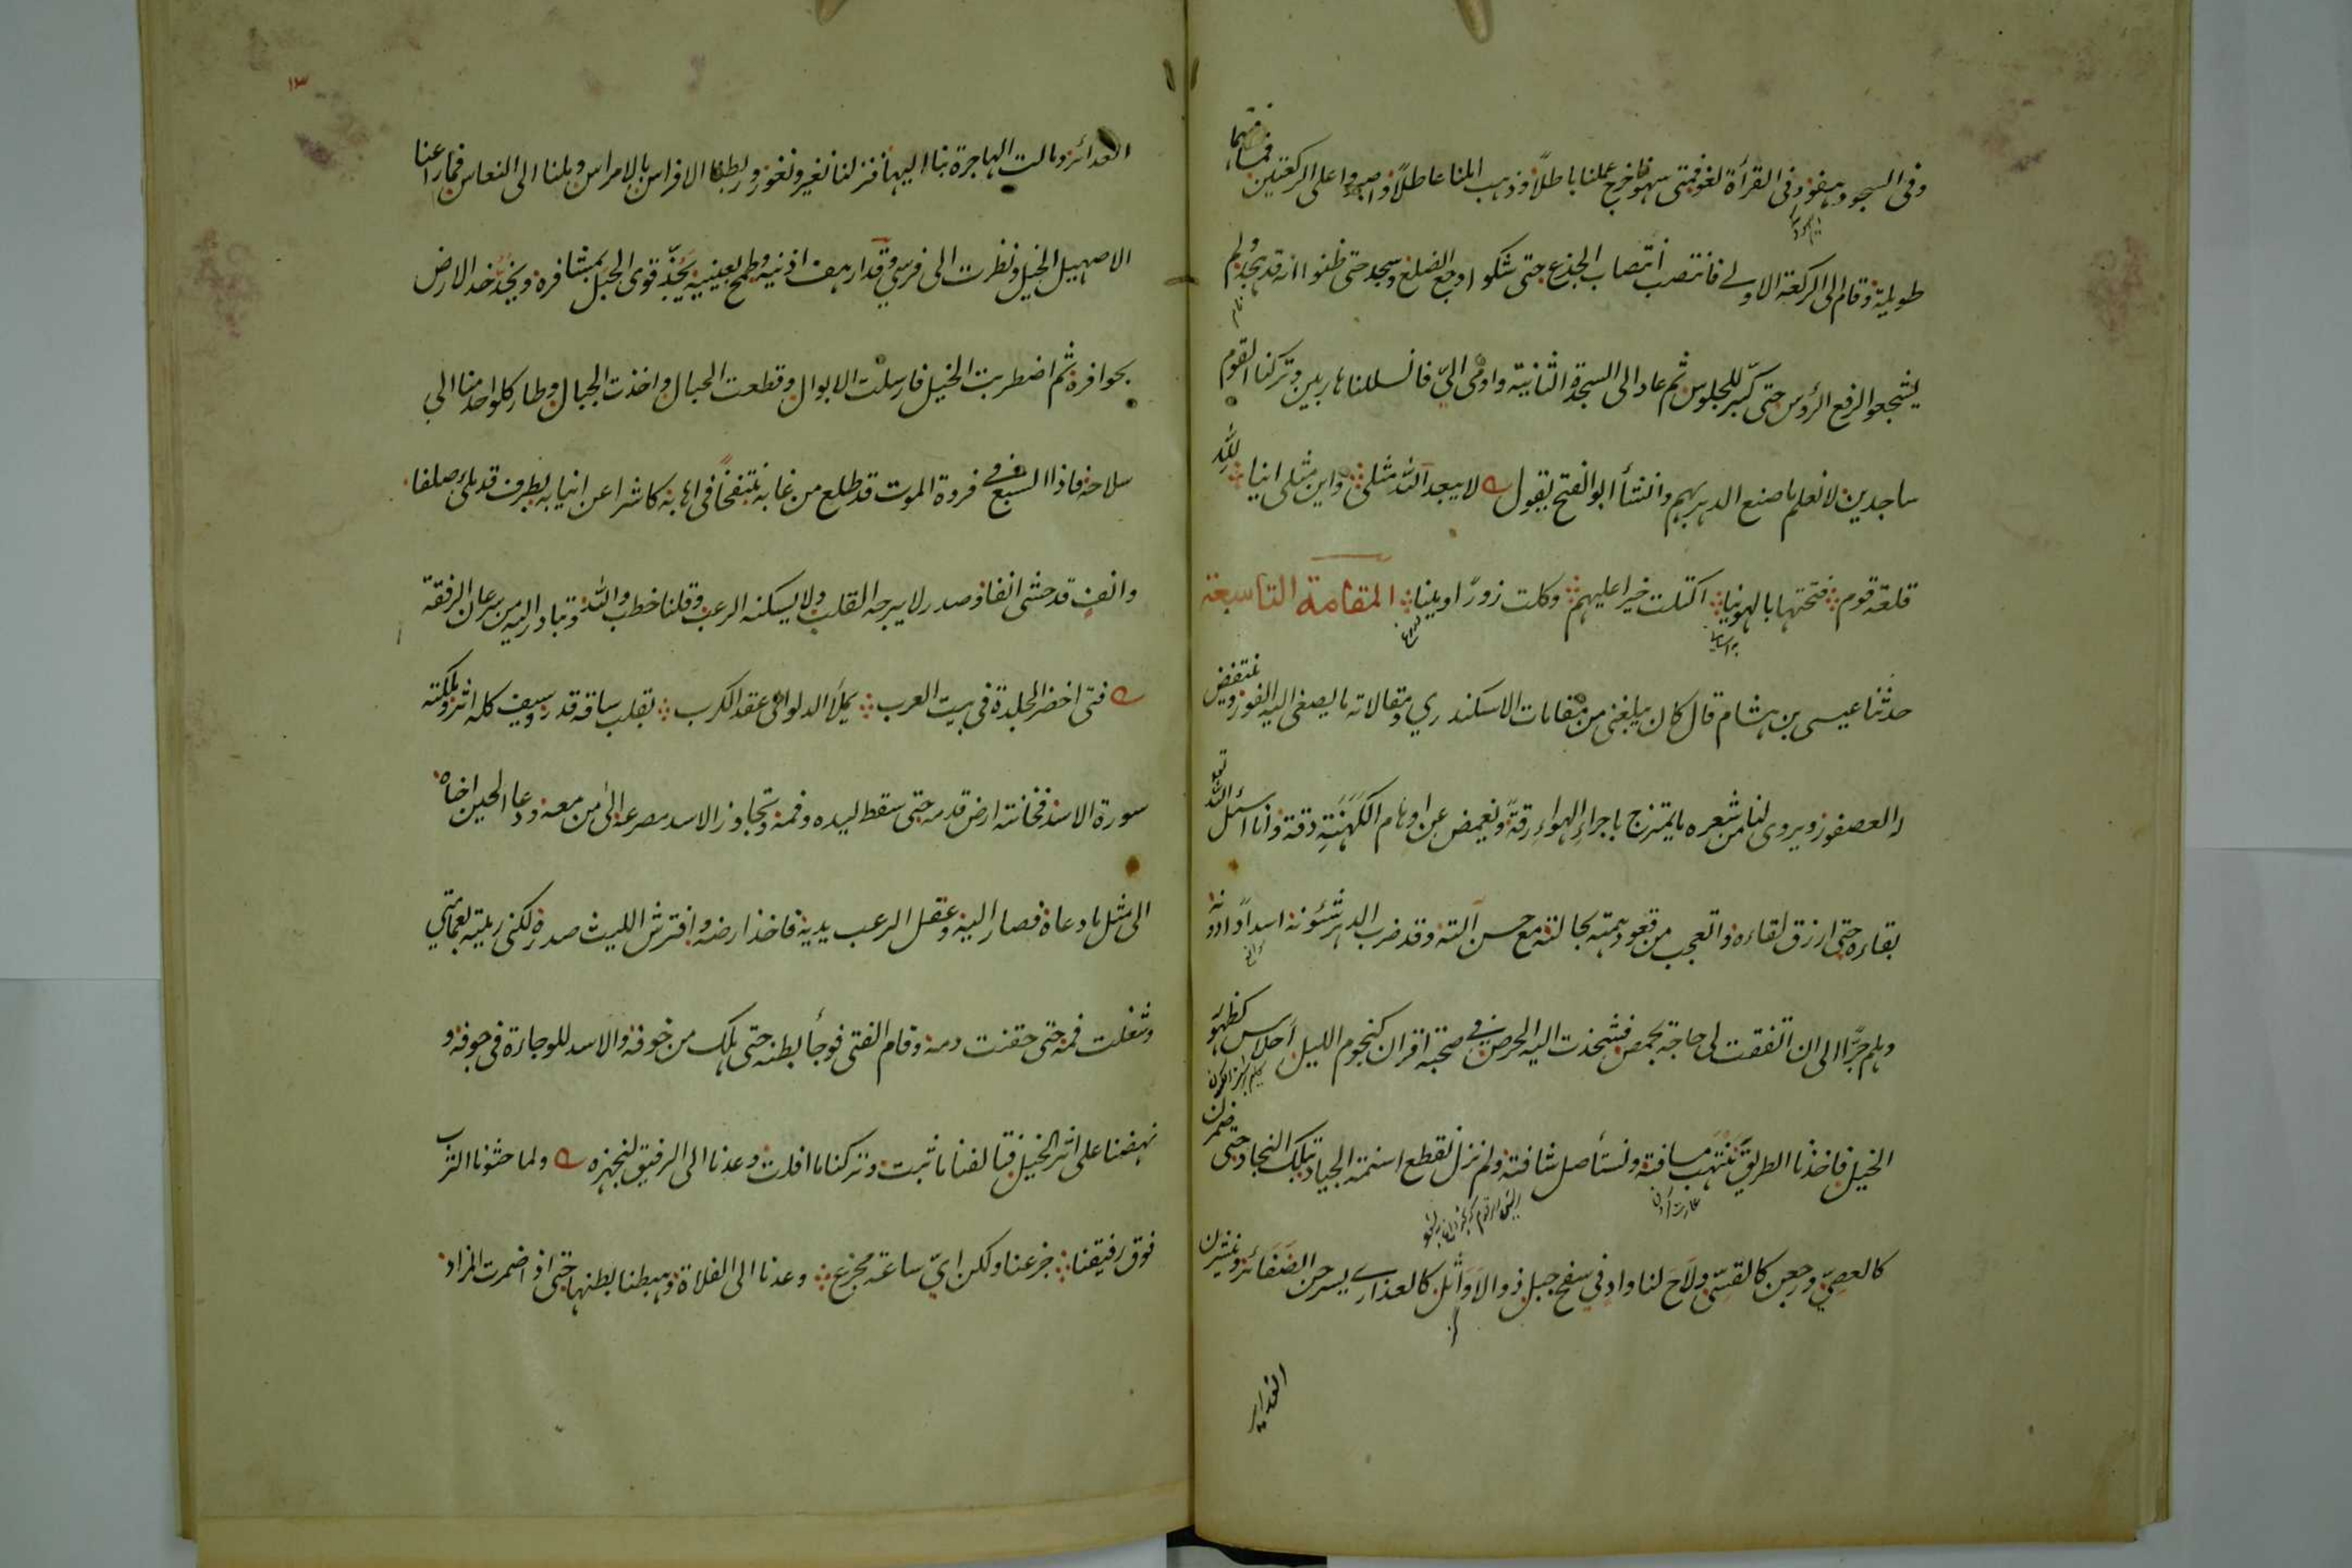 وفى السجود يهفو وفى القرأة يلغو فمتى سها خرج عملنا باطلا وذهب املنا عاطلا واصبروا على الركعتين فما
طويلة وقام الى الركعة الاولى فانتصب انتصاب الجذع حتى شكوا وجع الضلع وسجد حتى ظنوا انه قد هجد ولم
يشجعوا لرفع الرؤس حتى كبر للجلوس ثم عاد الى السجدة الثانية واومى الي فانسللنا هاربين وتركنا القوم
ساجدين لا نعلم ما صنع الدهر بهم وانشأ ابو الفتح يقول لا يبعد الله مثلى واين مثلى اينا لله
قلعة قوم فتحتها بالهوينا اكتلت خيرا عليهم وكلت زورا ومينا المقامة التاسعة
حدثنا عيسى بن هشام قال كان يبلغنى من مقامات الاسكندري ومقالاته ما يصغى اليه الفور وينتفض
له العصفور ويروى لنا من شعره ما يمتزج باجزاء الهواء رقة ونغمض عن اوهام الكهنة دقة وانا اسئل الله
بقاءه حتى ارزق لقاءه واتعجب من قعود همته بحالته مع حسن آلته وقد ضرب الدهر شئونه اسدادا دونه
وهلم جرا الى ان اتفقت لى حاجة بحمص فشحذت اليه الحرص في صحبة اقران كنجوم الليل احلاس لظهور
الخيل فاخذنا الطريق ننتهب مسافته ونستأصل شافته ولم نزل نقطع اسنمة الجياد بتلك النجاد حتى ضمرن
كالعصي ورجعن كالقسي ولاح لنا واد في سفح جبل ذو الاواثل كالعذارى يسرحن الضفائر وينشرن
الغداير
١٣
الغدائر ومالت الهاجرة بنا اليها فنزلنا نغير ونغور وربطنا الافراس بالامراس وملنا الى النعاس فما راعنا
الا صهيل الخيل ونظرت الى فرسي وقد ارهف اذنيه وطمح بعينيه يجذ قوى الحبل بمشافره ويخد خد الارض
بحوافره ثم اضطربت الخيل فارسلت الابوال وقطعت الحبال واخذت الجبال وطار كل واحد منا الى
سلاحه فاذا السبع في فروة الموت قد طلع من غابه منتفخا فى اهابه كاشرا عن انيابه بطرف قد ملئ صلفا
وانف قد حشى انفا وصدر لا يبرحه القلب ولا يسكنه الرعب وقلنا خطب والله وتبادر اليه من سرعان الرفقة
فتى اخضر الجلدة فى بيت العرب يملأ الدلو الى عقد الكرب بقلب ساقه قدر وسيف كله اثر وملكته
سورة الاسد فخانته ارض قدمه حتى سقط ليده وفمه وتجاوز الاسد مصرعه الى من معه ودعا الحين اخاه
الى مثل ما دعاه فصار اليه وعقل الرعب يديه فاخذ ارضه وافترش الليث صدره لكنى رميته بعمامتي
وشغلت فمه حتى حقنت دمه وقام الفتى فوجأ بطنه حتى هلك من خوفه والاسد للوجاءة فى جوفه و
نهضنا على اثر الخيل فتالفنا ما ثبت وتركنا ما افلت وعدنا الى الرفيق لنجهزه ولما حثونا الترب
فوق رفيقنا جزعنا ولكن اي ساعة مجزع وعدنا الى الفلاة وهبطنا بطنها حتى اذا ضمرت المزاد